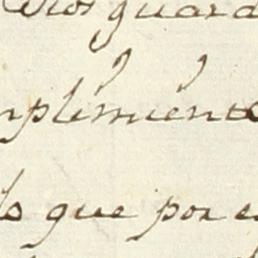 Dios guard
mplimiento
lo que por e